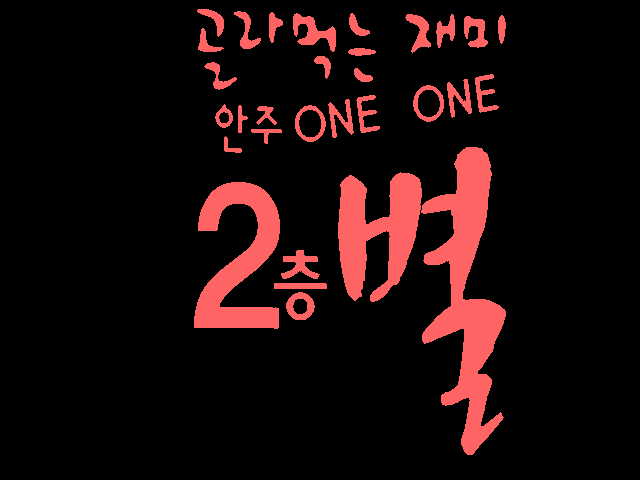 골라먹는 재미
안주 ONE ONE
2층 별